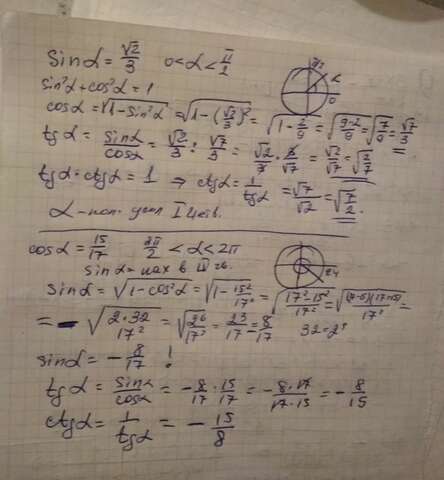 sinα = √2/3   0<α<π/2
sin²α+cos²α=1
cosα=√(1-sin²α) =√(1-(√2/3)²) = √(1-2/9) = √((9-2)/9) = √(7/9) = √7/3
tgα = sinα/cosα = √2/3 : √7/3 = √2/3 · 3/√7 = √2/√7 = √(2/7)
tgα·ctgα = 1 ⇒ ctgα = 1/tgα = √7/√2 = √(7/2).
α- I четв.
cosα=15/17   3π/2 < α < 2π
sinα= нах в IV
sinα = √(1-cos²α) = √(1-15²/17²) = √((17²-15²)/17²) = √((17-15)(17+15)/17²) =
= - √(2·32/17²) = √(2⁶/17²) = 2³/17 = 8/17   32=2⁵
sinα = - 8/17 !
tgα = sinα/cosα = -8/17 · 15/17 = -8·17/17·15 = - 8/15
ctgα = 1/tgα = - 15/8